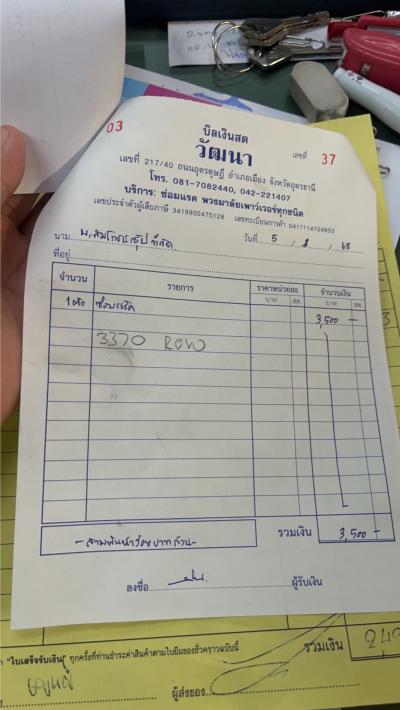 03
บิลเงินสด
วัฒนา
เลขที่ 37
เลขที่ 217/40 ถนนอุตรดุษฎี อำเภอเมือง จังหวัดอุดรธานี
โทร. 081-7082440, 042-221407
บริการ: ซ่อมแรค พวงมาลัยเพาเวอร์ทุกชนิด
เลขประจำตัวผู้เสียภาษี 3419900475128 เลขทะเบียนการค้า 0417114704852
นาม
วันที่ 5 / / 68
ที่อยู่
จำนวน รายการ ราคาหน่วยละ จำนวนเงิน
บาท สต. บาท สต.
3,500 -
3370 Revo
รวมเงิน 3,500 -
-สามพันห้าร้อยบาทถ้วน-
ลงชื่อ ผู้รับเงิน
"ใบเสร็จรับเงิน" ทุกครั้งที่ท่านชำระค่าสินค้าตามใบยืมของชั่วคราวฉบับนี้
รวมเงิน
ผู้ส่งของ